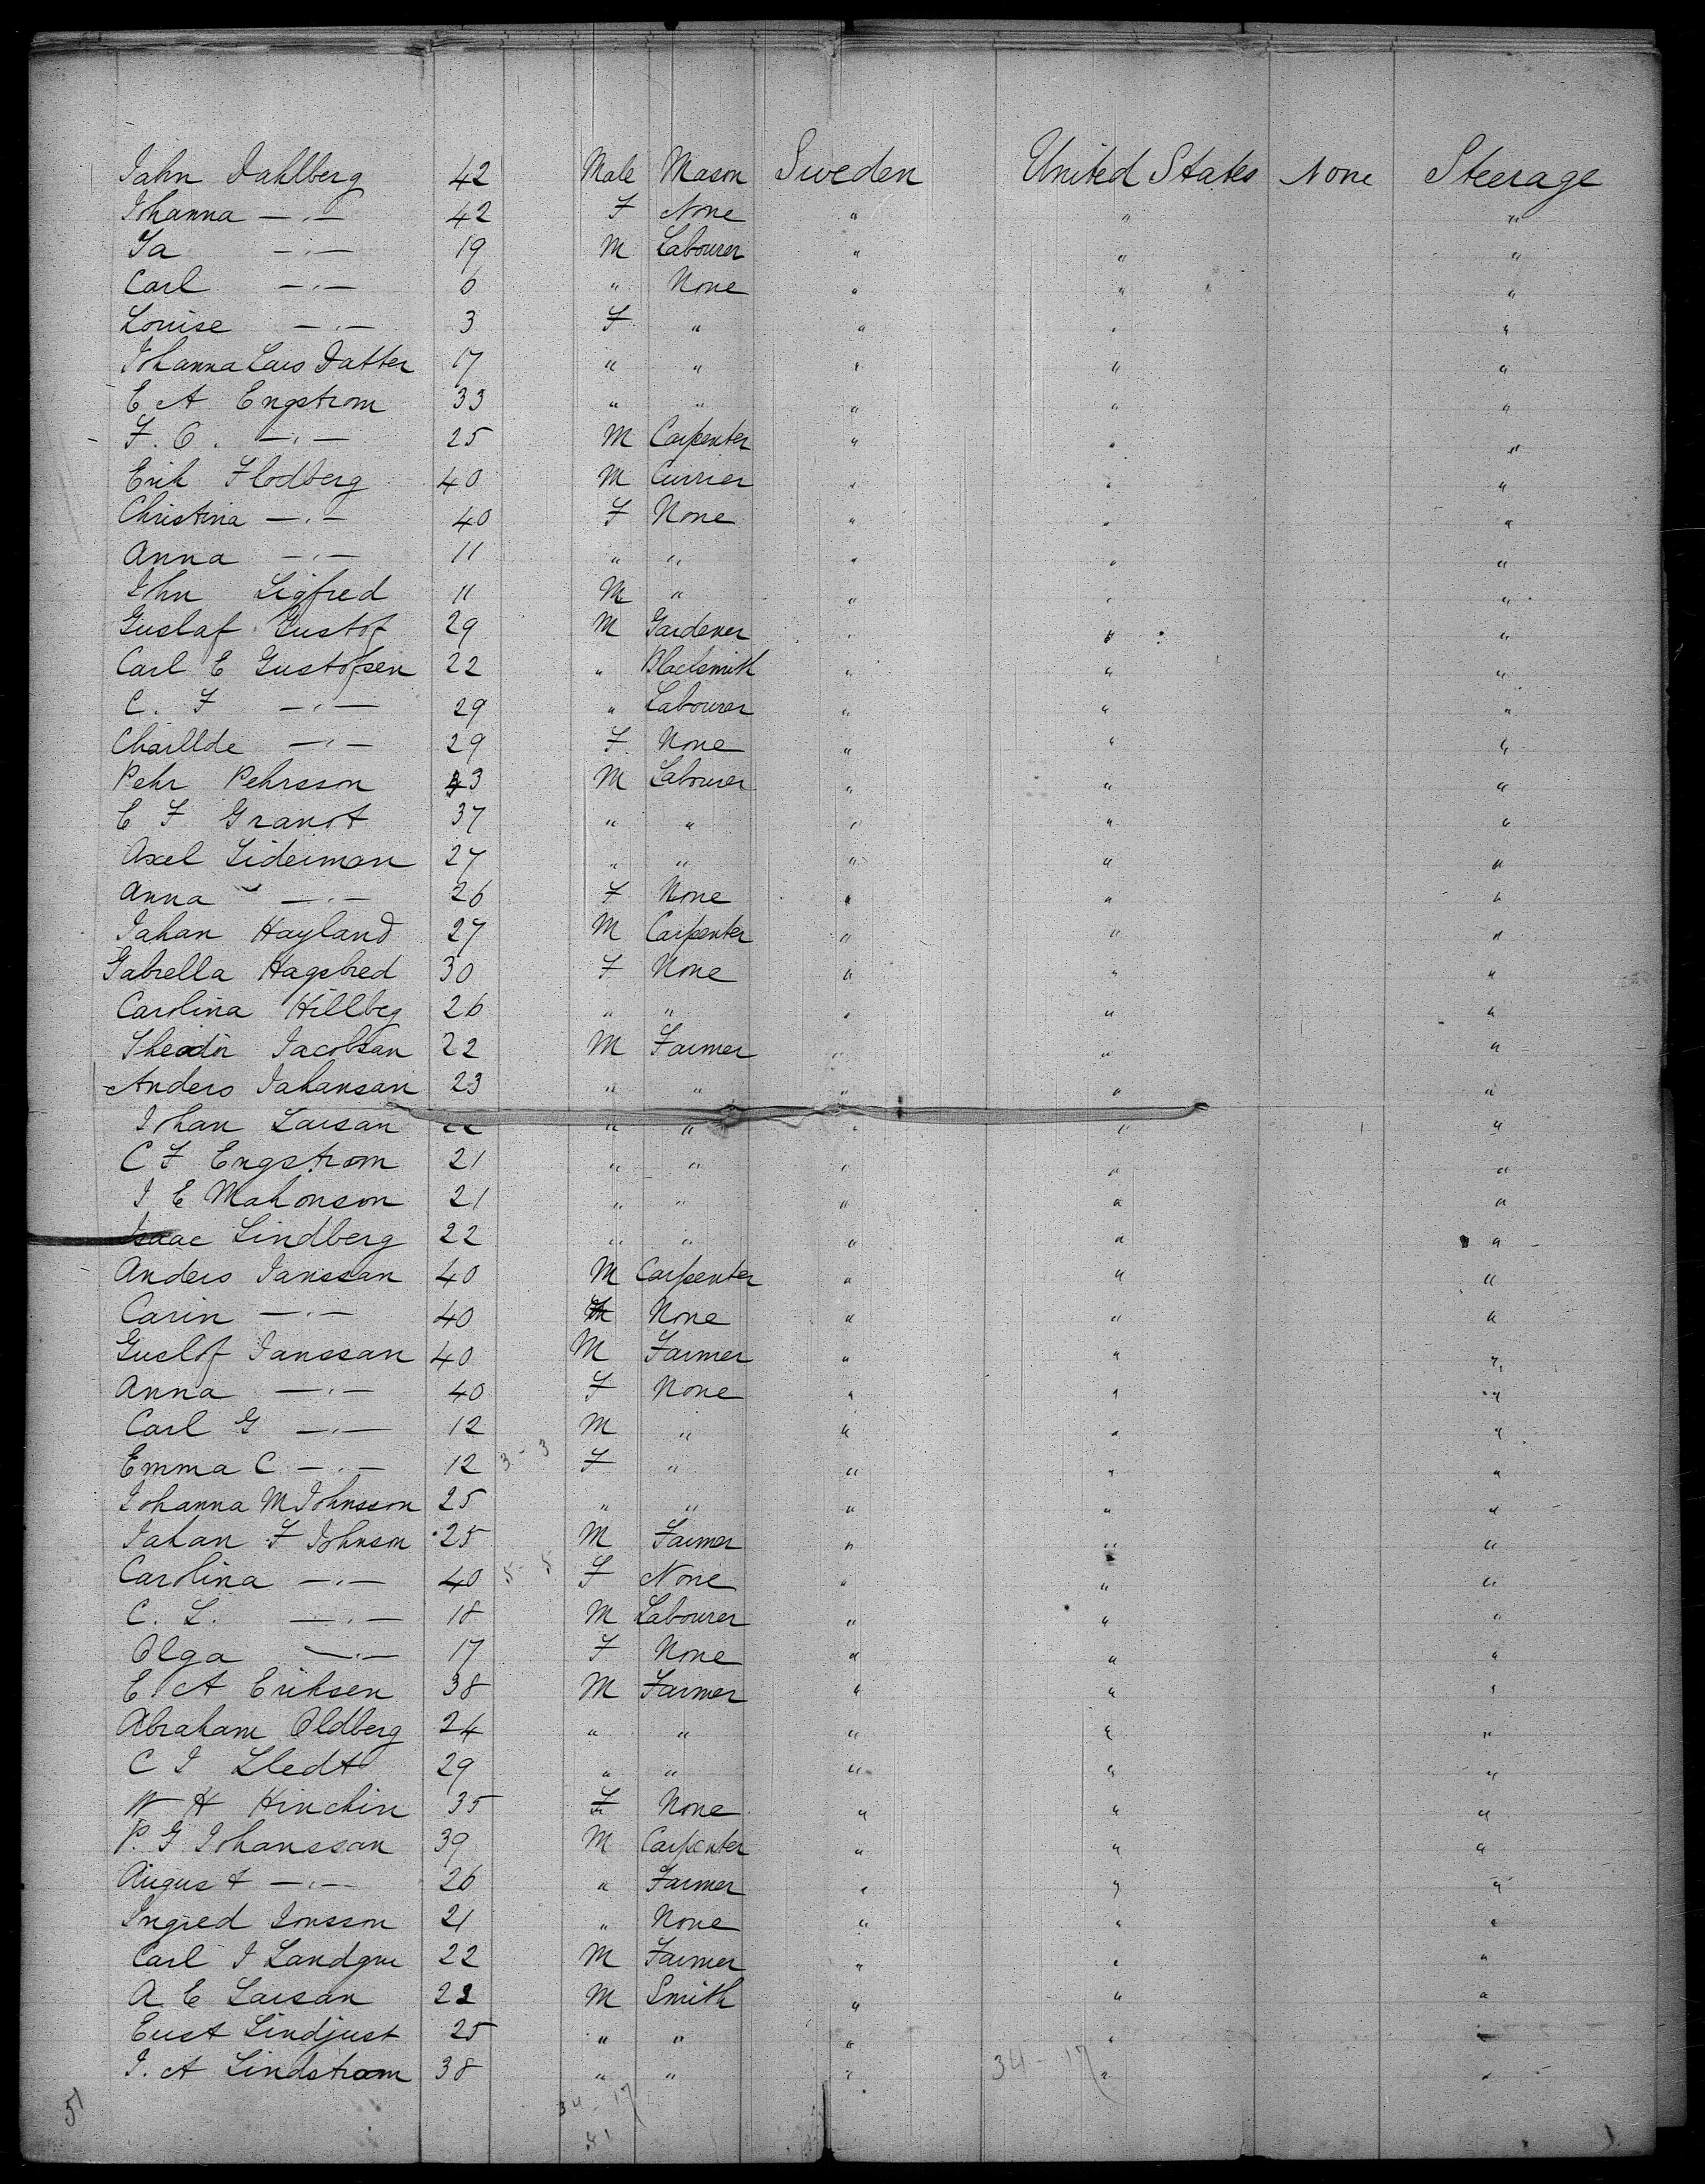 Jahn Dahlberg 42 Male Mason Sweden United States None Steerage
Johanna —"— 42 F None " " "
Ja —"— 19 M Labourer " " "
Carl —"— 6 " None " " "
Louise —"— 3 F " " " "
Johanna Lars Datter 17 " " " " "
E A Engstrom 33 " " " " "
F. O. —"— 25 M Carpenter " " "
Erik Flodberg 40 M Currier " " "
Christina —"— 40 F None " " "
Anna —"— 11 " " " " "
John Sigfred 11 M " " " "
Guslaf Gustof 29 M Gardener " " "
Carl E Gustofsen 22 " Blacksmith " " "
C. F —"— 29 " Labourer " " "
Charllde —"— 29 F. None " " "
Pehr Pehrsson 43 M Labourer " " "
E F Granot 37 " " " " "
Axel Lideiman 27 " " " " "
Anna —"— 26 F None " " "
Jahan Hayland 27 M Carpenter " " "
Gabrella Hagebred 30 F None " " "
Carolina Hillbeg 26 " " " " "
Theodor Jacobsan 22 M Farmer " " "
Anders Jahansan 23 " " " " "
Johan Larsan 22 " " " " "
C F Engstrom 21 " " " " "
J E Mahonson 21 " " " " "
Isaac Lindberg 22 " " " " "
Anders Janssan 40 M Carpenter " " "
Carin —"— 40 None " " "
Guslof Janssan 40 M Farmer " " "
Anna —"— 40 F None " " "
Carl G —"— 12 M " " " "
Emma C —"— 12 3-3 F " " " "
Johanna M Johnsson 25 " " " " "
Jahan F Johnson 25 M Farmer " " "
Carolina —"— 40 5-5 F None " " "
C. L. —"— 18 M Labourer " " "
Olga —"— 17 F None " " "
E. A Eriksen 38 M Farmer " " "
Abraham Oldberg 24 " " " " "
C J Lledt 29 " " " " "
W H Hinchin 35 F None " " "
P. G Johanssan 39 M Carpenter " " "
August —"— 26 " Farmer " " "
Ingred Jonsson 21 " None " " "
Carl J Landgre 22 M Farmer " " "
A. E Larsan 22 M Smith " " "
Eust Lindjust 25 " " " " "
J. A Lindstrom 38 " " " " "
34-17
51 34-17
51